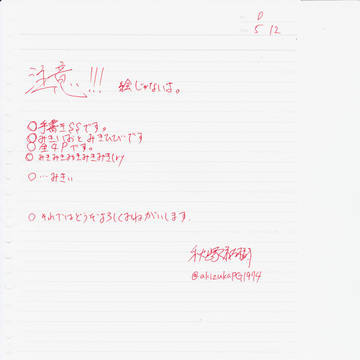 0
5 12
注意、!!! 絵じゃないよ。
○手書きSSです。
○みきいおと みきひびです
○全4Pです。
○みきみきみきみきみき(ry
○…みきぃ
○それではどうぞよろしくおねがいします。
秋塚
@akizukaPG1974